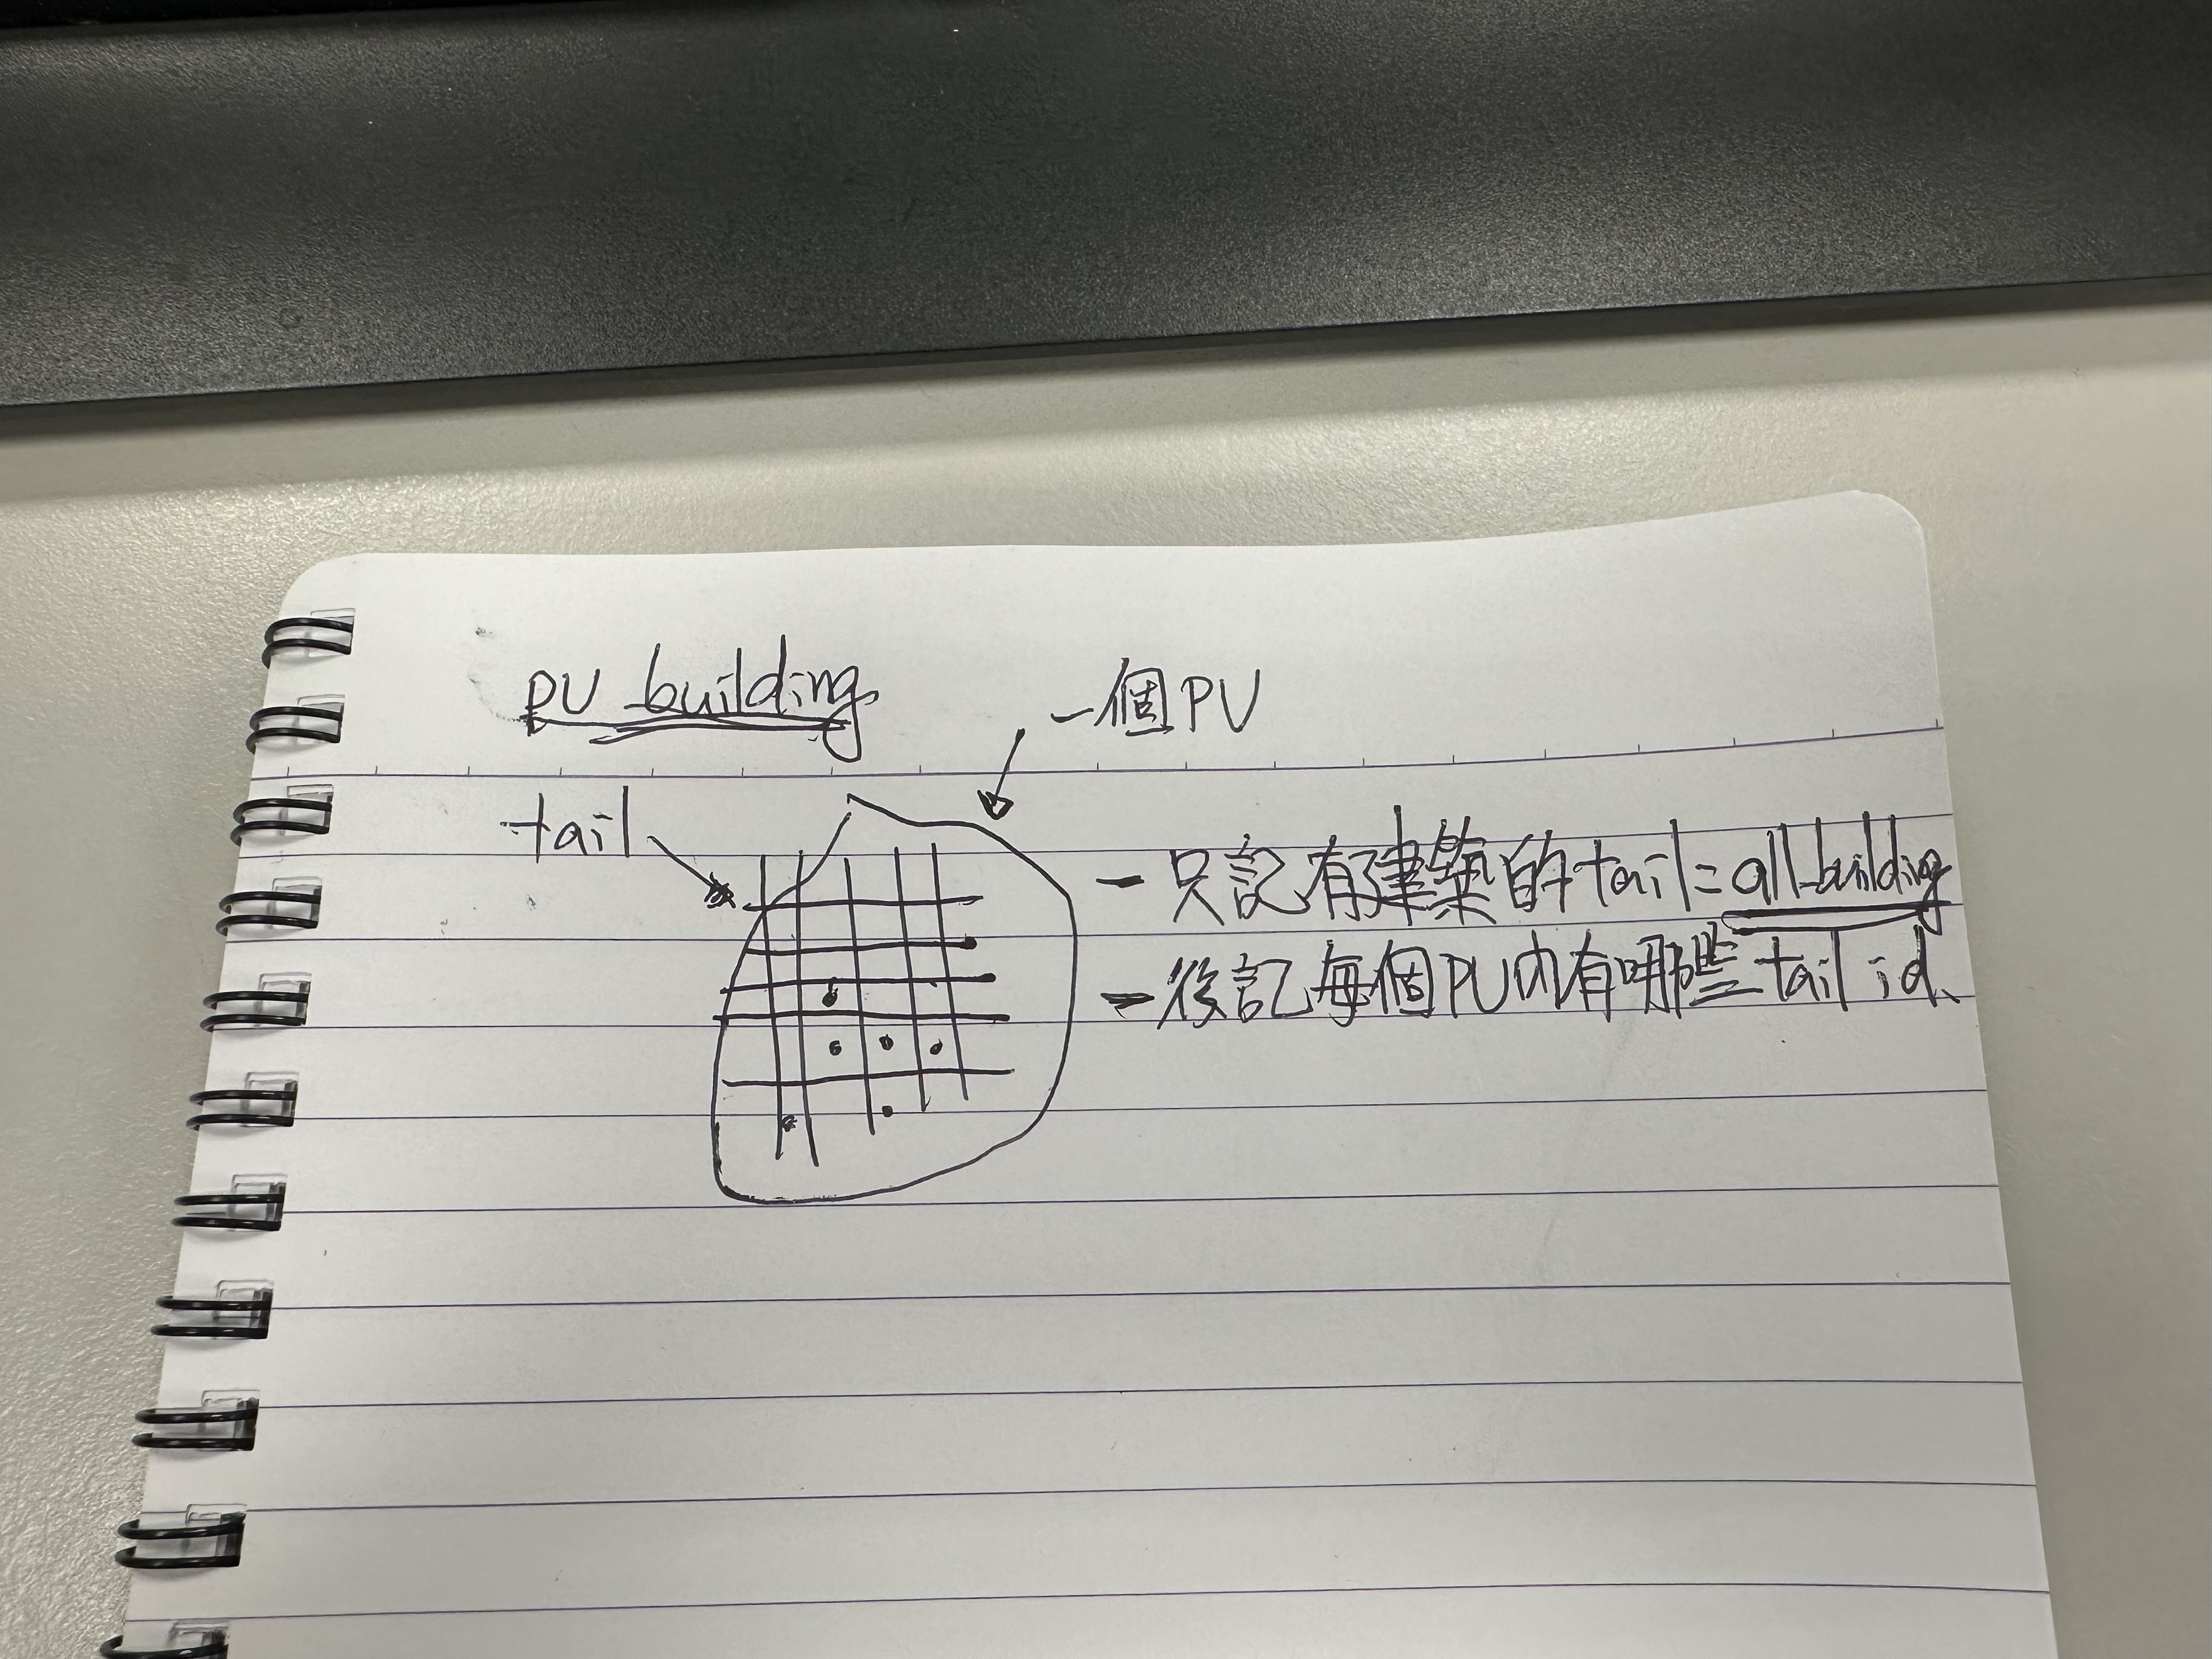 PU_building
一個PU
tail
- 只記有建築的tail = all_building
- 後記每個PU內有哪些tail id、